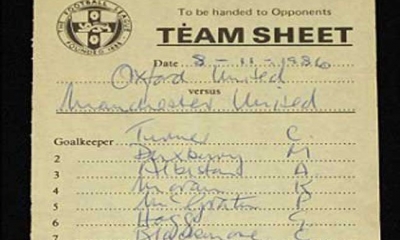 THE FOOTBALL LEAGUE
FOUNDED 1888
To be handed to Opponents
TEAM SHEET
Date 8-11-1986
Oxford United
versus
Manchester United
Goalkeeper Turner C.
2 Duxberry M
3 Albiston A
4 Moran K
5 McGrath P
6 Hogg G
7 Blackmore C